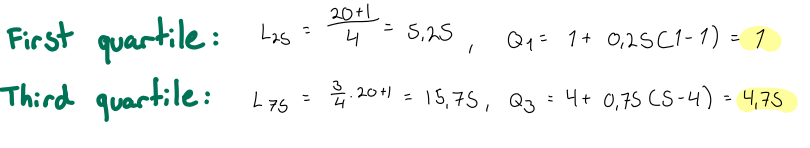 First quartile: L25 = 20+1/4 = 5,25 , Q1 = 1 + 0,25(1-1) = 1
Third quartile: L75 = 3/4 · 20+1 = 15,75, Q3 = 4 + 0,75(5-4) = 4,75